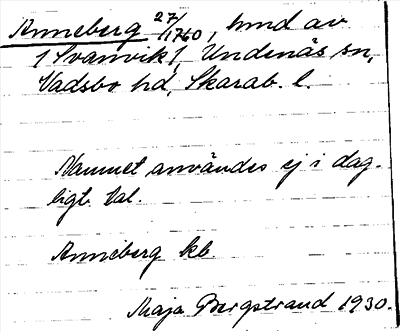 Anneberg 27/1760, hmd av
1 Svanvik 1, Undenäs sn,
Vadsbo hd, Skarab. l.
Namnet användes ej i dag-
ligt tal.
Anneberg kb.
Maja Bergstrand 1930.